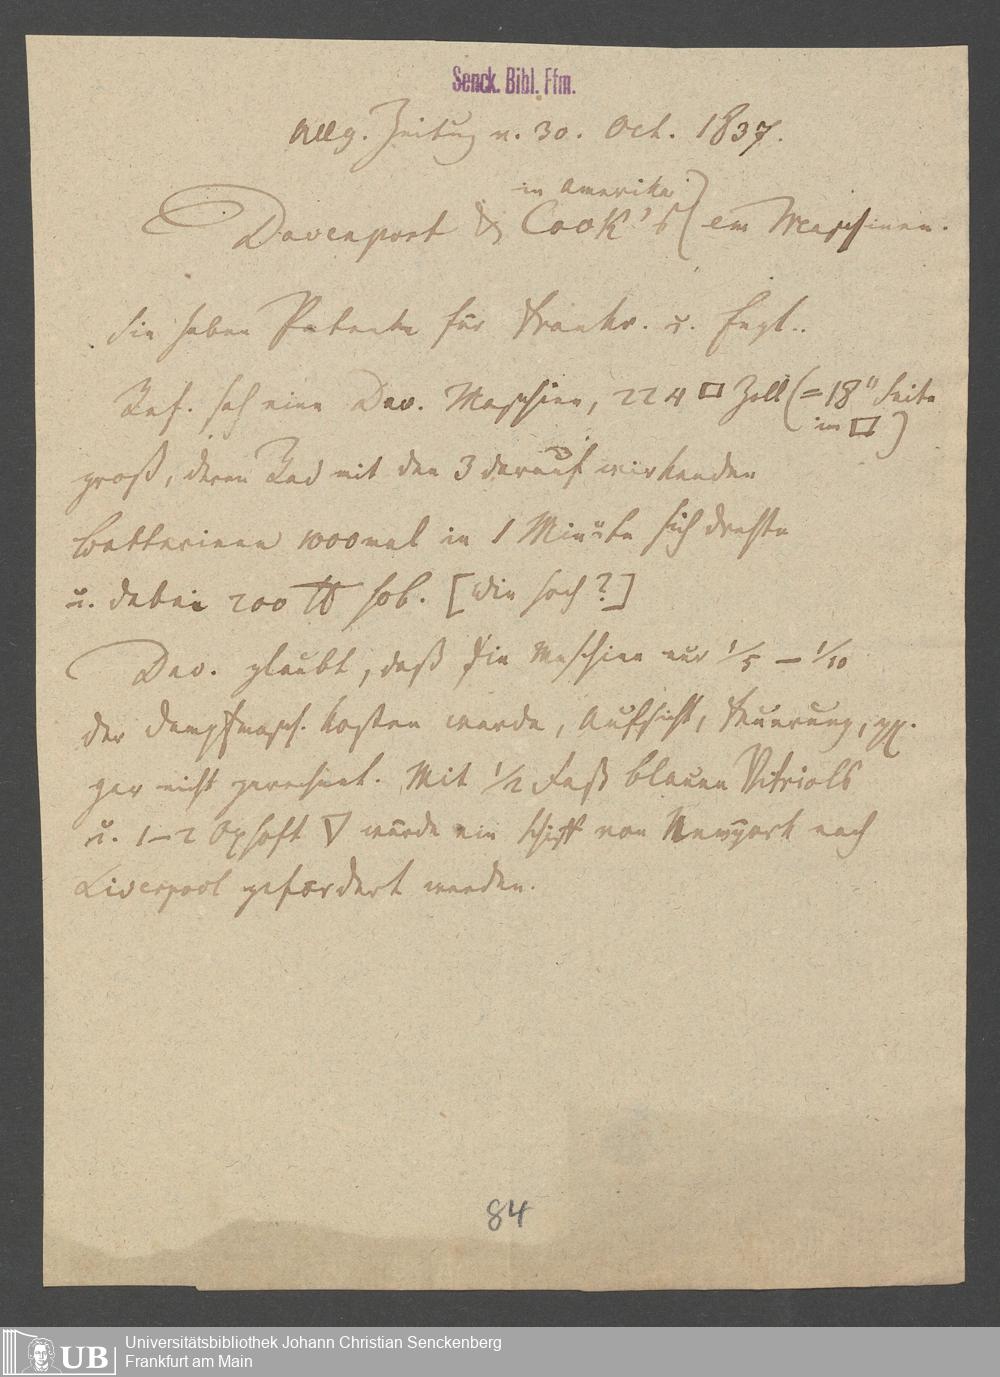 Senck. Bibl. Ffm.
Allg. Zeitung v. 30. Oct. 1837.
in Amerika
Davenport & Cook's) em Maschinen.
Sie haben Patente für Frankr. u. Engl..
Ref. sah eine Dav. Maschine, 224 □ Zoll (= 18" Seite
im □)
groß, deren Rad mit den 3 darauf wirkenden
Batterieen 1000mal in 1 Minute sich drehte
u. dabei 200 ℔ hob. [Wie hoch?]
Dav. glaubt, daß die Maschine nur 1/5 – 1/10
der Dampfmasch. kosten werde, Aufsicht, Feuerung, pp.
gar nicht gerechnet. Mit 1/2 Faß blauen Vitriols
u. 1–2 Oxhoft ▽ würde ein Schiff von Newyork nach
Liverpool gefördert werden.
84
UB
Universitätsbibliothek Johann Christian Senckenberg
Frankfurt am Main